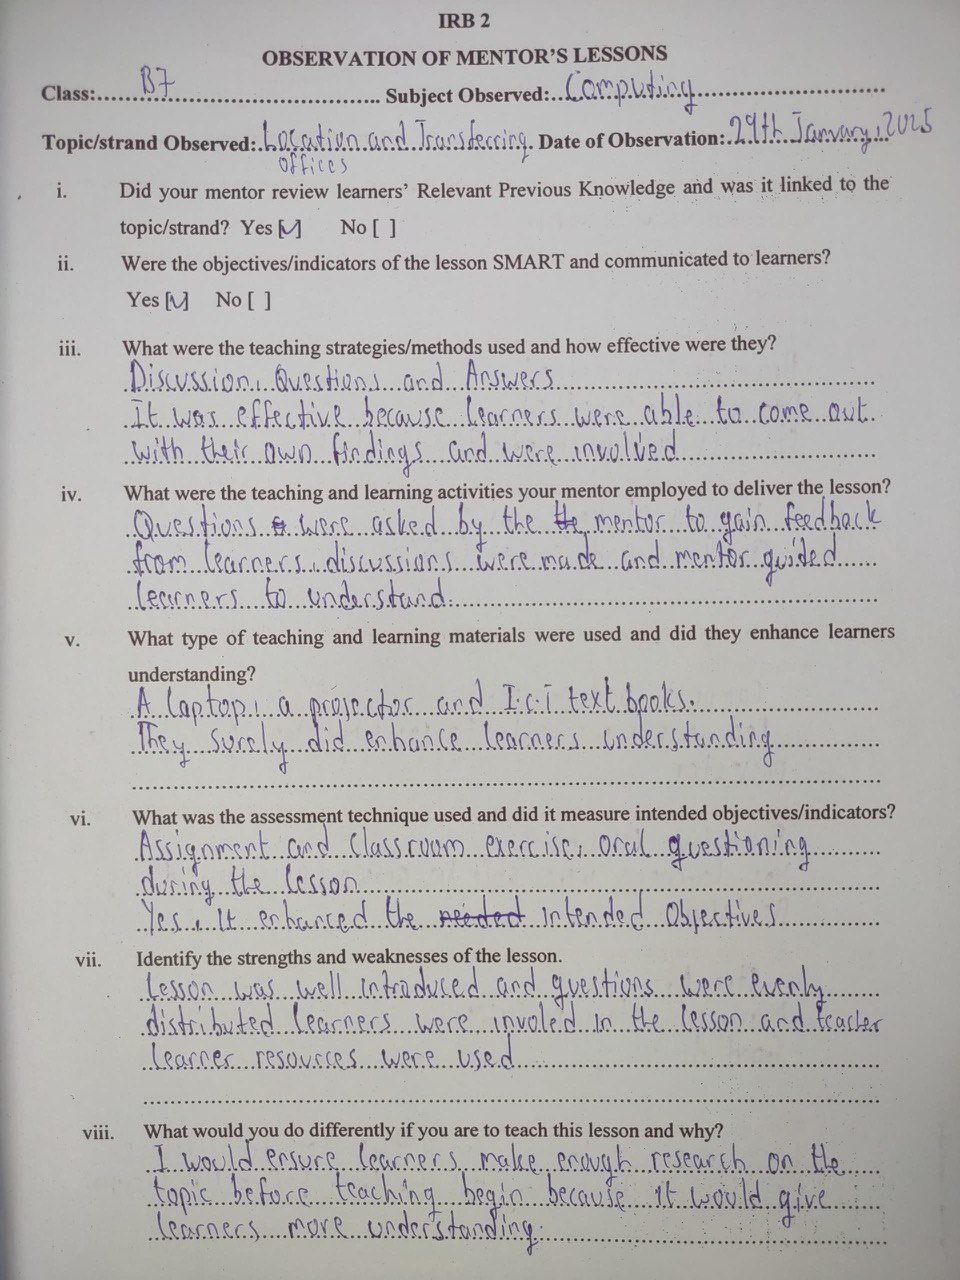 IRB 2
OBSERVATION OF MENTOR'S LESSONS
Class: B7 Subject Observed: Computing
Topic/strand Observed: Location and Transferring Date of Observation: 29th January, 2025
offices
i. Did your mentor review learners' Relevant Previous Knowledge and was it linked to the
topic/strand? Yes [✓] No [ ]
ii. Were the objectives/indicators of the lesson SMART and communicated to learners?
Yes [✓] No [ ]
iii. What were the teaching strategies/methods used and how effective were they?
Discussion, Questions and Answers
It was effective because learners were able to come out
with their own findings and were involved
iv. What were the teaching and learning activities your mentor employed to deliver the lesson?
Questions were asked by the mentor to gain feedback
from learners, discussions were made and mentor guided
learners to understand.
v. What type of teaching and learning materials were used and did they enhance learners
understanding?
A laptop, a projector and I.C.T text books.
They surely did enhance learners understanding
vi. What was the assessment technique used and did it measure intended objectives/indicators?
Assignment and classroom exercise, oral questioning
during the lesson
Yes, It enhanced the needed intended Objectives
vii. Identify the strengths and weaknesses of the lesson.
Lesson was well introduced and questions were evenly
distributed learners were involed in the lesson and teacher
learner resources were used
viii. What would you do differently if you are to teach this lesson and why?
I would ensure learners make enough research on the
topic before teaching begin because it would give
learners more understanding.